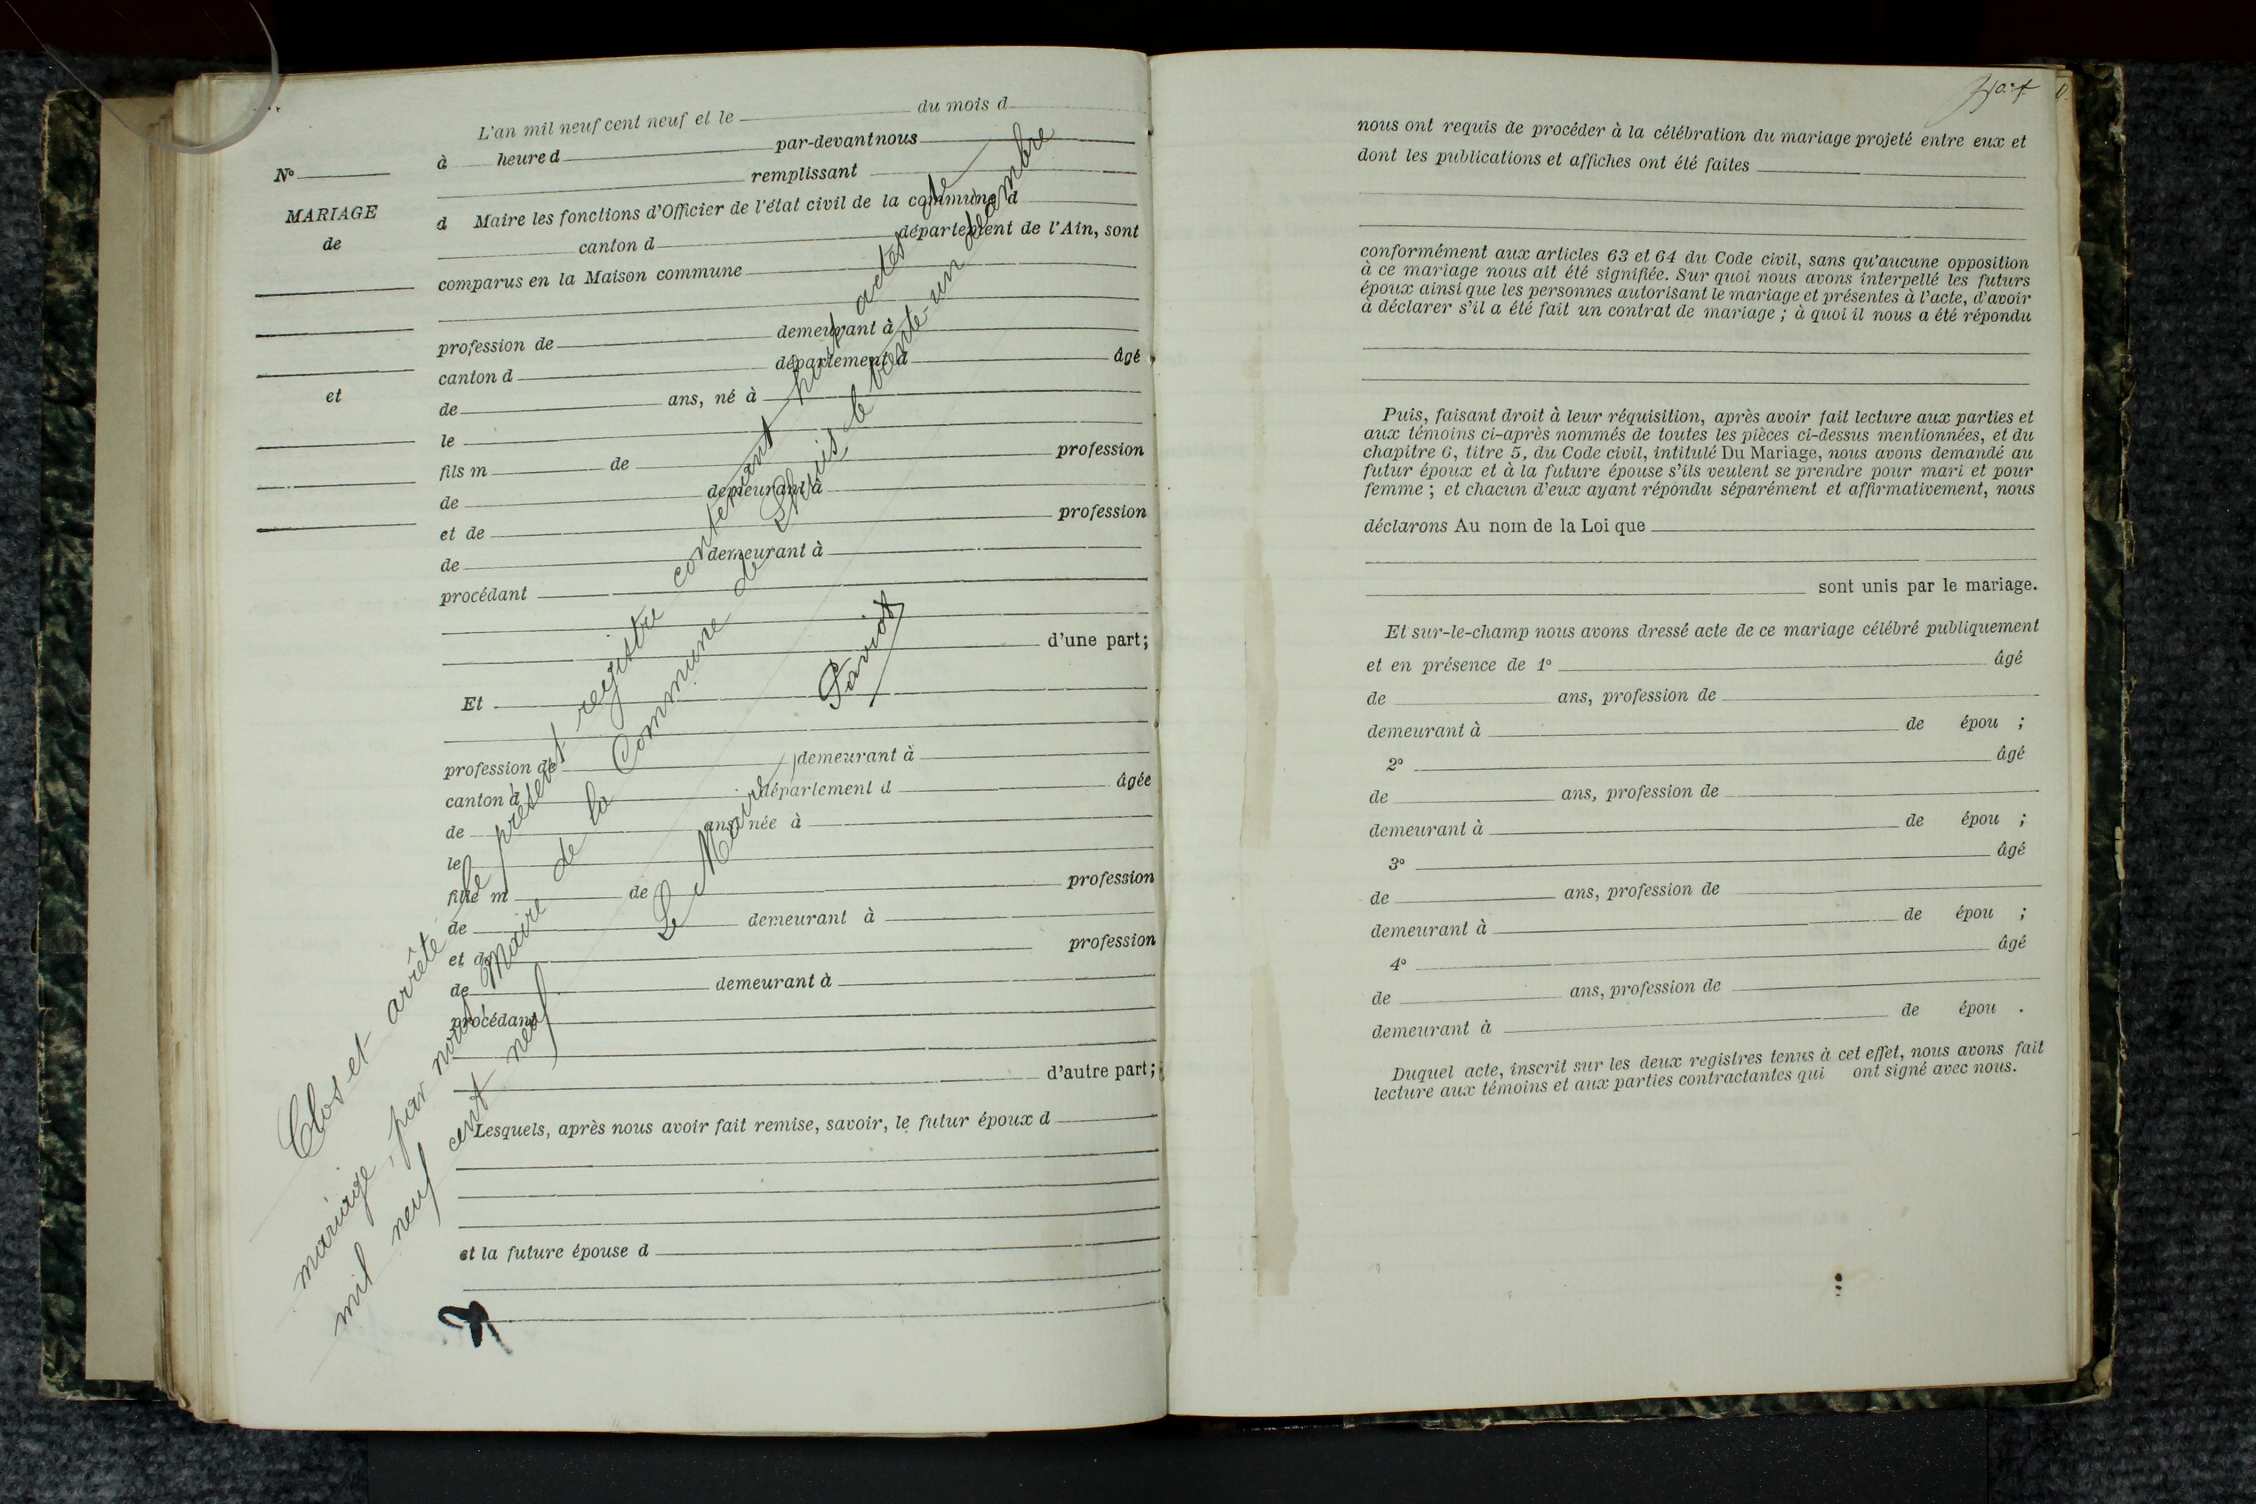 L'an mil neuf cent neuf et le du mois d
à heure d par-devant nous
N° remplissant
MARIAGE
de
d Maire les fonctions d'Officier de l'état civil de la commune d
canton d département de l'Ain, sont
comparus en la Maison commune
profession de demeurant à
canton d département d âgé
et
de ans, né à
le
fils m de profession
de demeurant à
et de profession
de demeurant à
procédant
d'une part;
Et
profession de demeurant à
canton d département d âgée
de ans née à
le
fille m de profession
de demeurant à
et de profession
de demeurant à
procédant
d'autre part;
Lesquels, après nous avoir fait remise, savoir, le futur époux d
et la future épouse d
Clos et arrêté le présent registre contenant huit actes de
mariage, par nous Maire de la Commune de le trente-un décembre
mil neuf cent neuf
Le Maire
Paviot
nous ont requis de procéder à la célébration du mariage projeté entre eux et
dont les publications et affiches ont été faites
conformément aux articles 63 et 64 du Code civil, sans qu'aucune opposition
à ce mariage nous ait été signifiée. Sur quoi nous avons interpellé les futurs
époux ainsi que les personnes autorisant le mariage et présentes à l'acte, d'avoir
à déclarer s'il a été fait un contrat de mariage ; à quoi il nous a été répondu
Puis, faisant droit à leur réquisition, après avoir fait lecture aux parties et
aux témoins ci-après nommés de toutes les pièces ci-dessus mentionnées, et du
chapitre 6, titre 5, du Code civil, intitulé Du Mariage, nous avons demandé au
futur époux et à la future épouse s'ils veulent se prendre pour mari et pour
femme ; et chacun d'eux ayant répondu séparément et affirmativement, nous
déclarons Au nom de la Loi que
sont unis par le mariage.
Et sur-le-champ nous avons dressé acte de ce mariage célébré publiquement
et en présence de 1° âgé
de ans, profession de
demeurant à de épou ;
2° âgé
de ans, profession de
demeurant à de épou ;
3° âgé
de ans, profession de
demeurant à de épou ;
4° âgé
de ans, profession de
demeurant à de épou .
Duquel acte, inscrit sur les deux registres tenus à cet effet, nous avons fait
lecture aux témoins et aux parties contractantes qui ont signé avec nous.